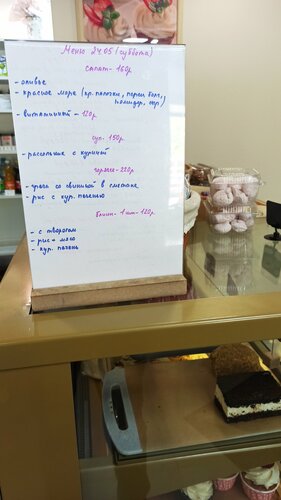 Меню 24.05 (суббота)
салат - 160р.
- оливье
- красное море (кр. палочки, перец болг,
помидор, сыр)
- витаминный - 120р.
суп. 150р.
- рассольник с курицей
горячее - 220р.
- гречка со свининой в сметане
- рис с кур. печенью
блины - 1 шт - 120р.
- с творогом
- рис + мясо
- кур. печень